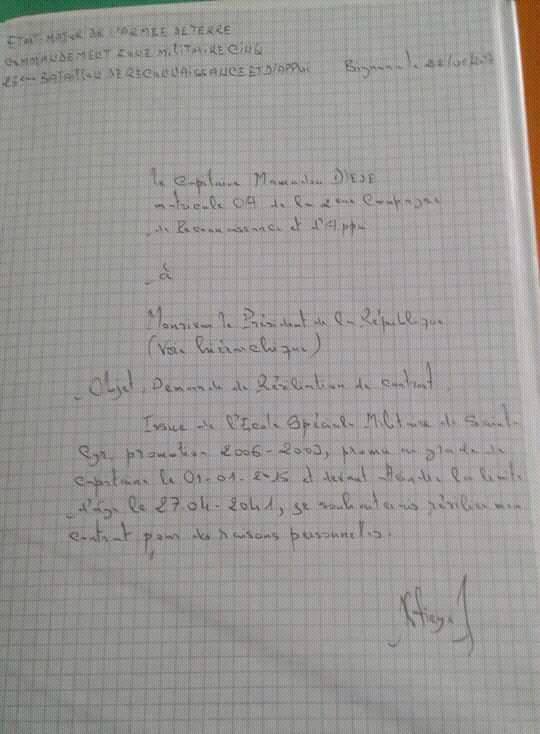 ETAT-MAJOR DE L'ARMEE DE TERRE
COMMANDEMENT ZONE MILITAIRE CINQ
25ème BATAILLON DE RECONNAISSANCE ET D'APPUI Bignona le
Le Capitaine Mamadou DIEYE
matricule de la 2ème Compagnie
de Reconnaissance et d'Appui
à
Monsieur le Président de la République
(Voie hiérarchique)
Objet: Demande de Résiliation de contrat.
Issue de l'Ecole Spéciale Militaire de Saint-
Cyr, promotion 2006-2009, promu au grade de
capitaine le 01-01-2015 et devant atteindre la limite
d'âge le 27-04-2041, je souhaiterais résilier mon
contrat pour des raisons personnelles.